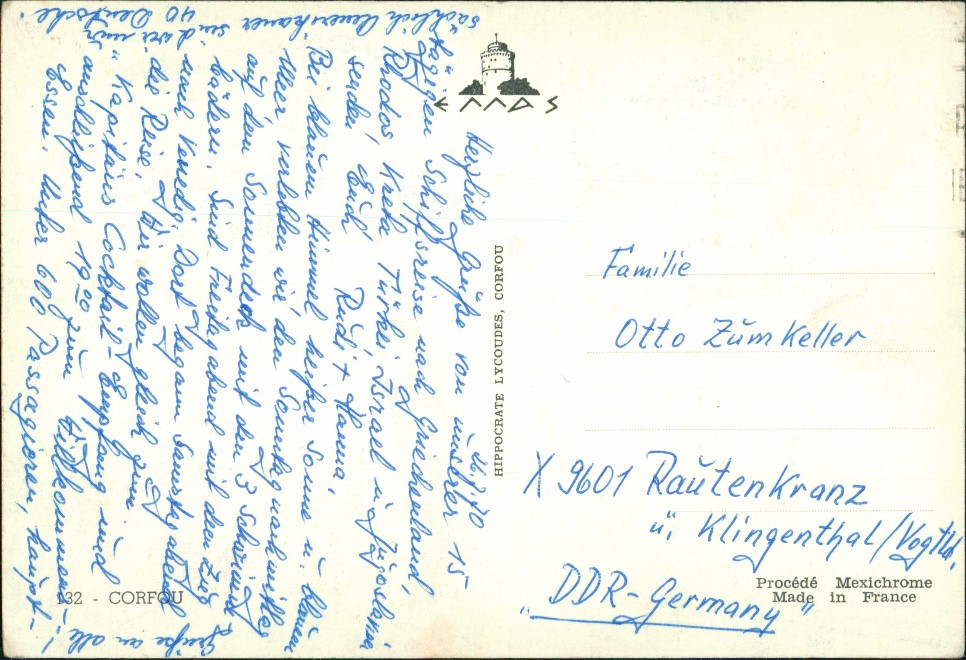 26.7.70
Herzliche Grüße von unserer 15
tägigen Schiffsreise nach Griechenland,
Rhodos, Kreta, Türkei, Israel u.
senden Euch Rudi + Hanna,
Bei blauen Himmel heißer Sonne u. blauen
Meer verleben wir den Sonntagnachmittag
auf dem Sonnendeck mit den 3 Schwimm-
bädern. Sind Freitagabend mit den Zug
nach Venedig. Dort begann Samstagabend
die Reise. Wir wollen gleich zum
"Kapitäns Cocktail-Empfang und
anschließend 19.00 zum Willkommen-
Essen. Unter 600 Passagieren, haupt-
sächlich Amerikaner sind wir nur
40 Deutsche.
Grüße an alle!
ΕΛΛΑΣ
HIPPOCRATE LYCOUDES, CORFOU
Familie
Otto Zümkeller
X 9601 Rautenkranz
ü. Klingenthal/Vogtld.
"DDR-Germany"
132 - CORFOU
Procédé Mexichrome
Made in France